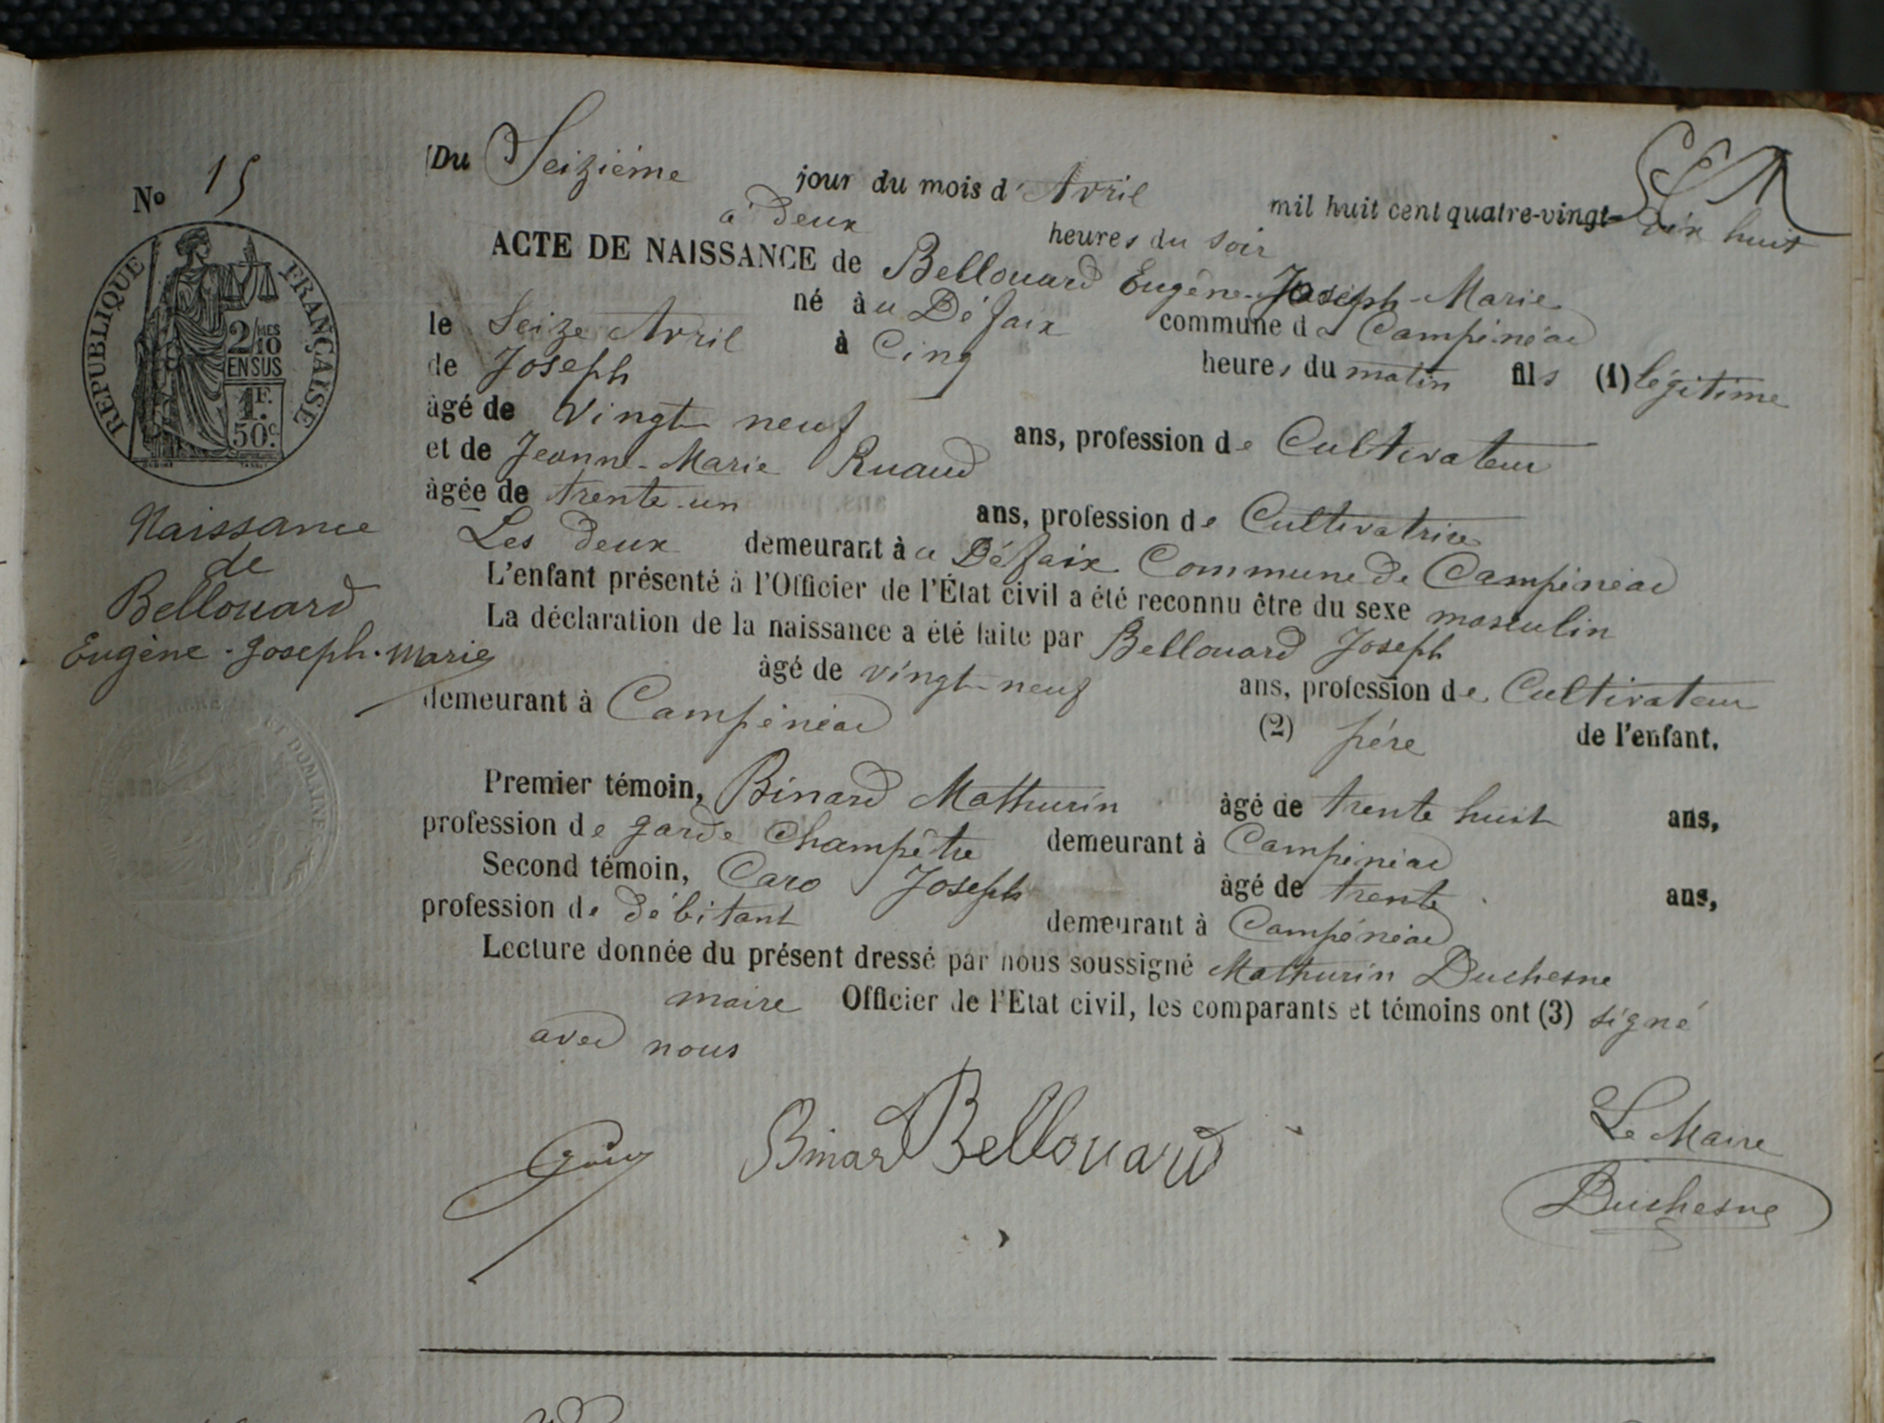 No 15
REPUBLIQUE FRANÇAISE
2/MES
10
EN SUS
1F.
50C.
Naissance
de
Bellouard
Eugène-Joseph-Marie
Du Seizième jour du mois d'Avril mil huit cent quatre-vingt-dix huit
à deux heures du soir
ACTE DE NAISSANCE de Bellouard Eugène-Joseph-Marie
né au Défaix commune de Campénéac
le Seize Avril à Cinq heures du matin fils (1) légitime
de Joseph
âgé de Vingt-neuf ans, profession de Cultivateur
et de Jeanne-Marie Ruaud
âgée de trente-un ans, profession de Cultivatrice
Les deux demeurant à au Défaix Commune de Campénéac
L'enfant présenté à l'Officier de l'État civil a été reconnu être du sexe masculin
La déclaration de la naissance a été faite par Bellouard Joseph
âgé de vingt-neuf ans, profession de Cultivateur
demeurant à Campénéac (2) père de l'enfant.
Premier témoin, Binard Mathurin âgé de trente huit ans,
profession de garde Champêtre demeurant à Campénéac
Second témoin, Caro Joseph âgé de trente ans,
profession de débitant demeurant à Campénéac
Lecture donnée du présent dressé par nous soussigné Mathurin Duchesne
maire Officier de l'Etat civil, les comparants et témoins ont (3) signé
avec nous
Binard Bellouard
Le Maire
Duchesne